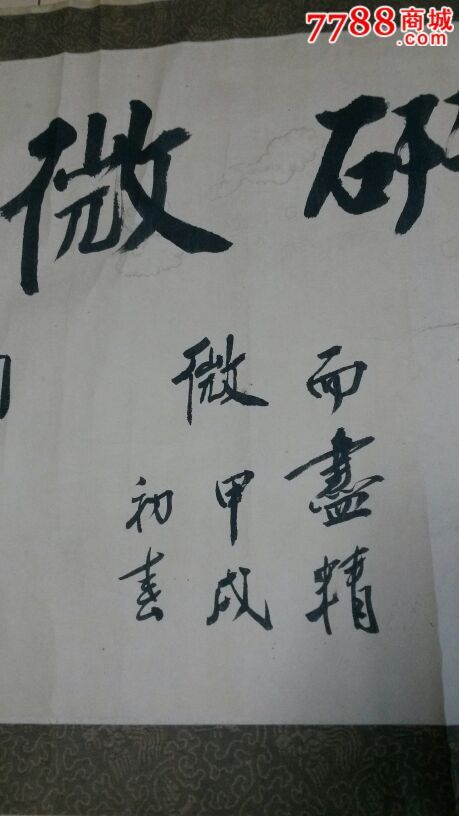 7788商城
.com
研微
而盡精
微甲戌
初春